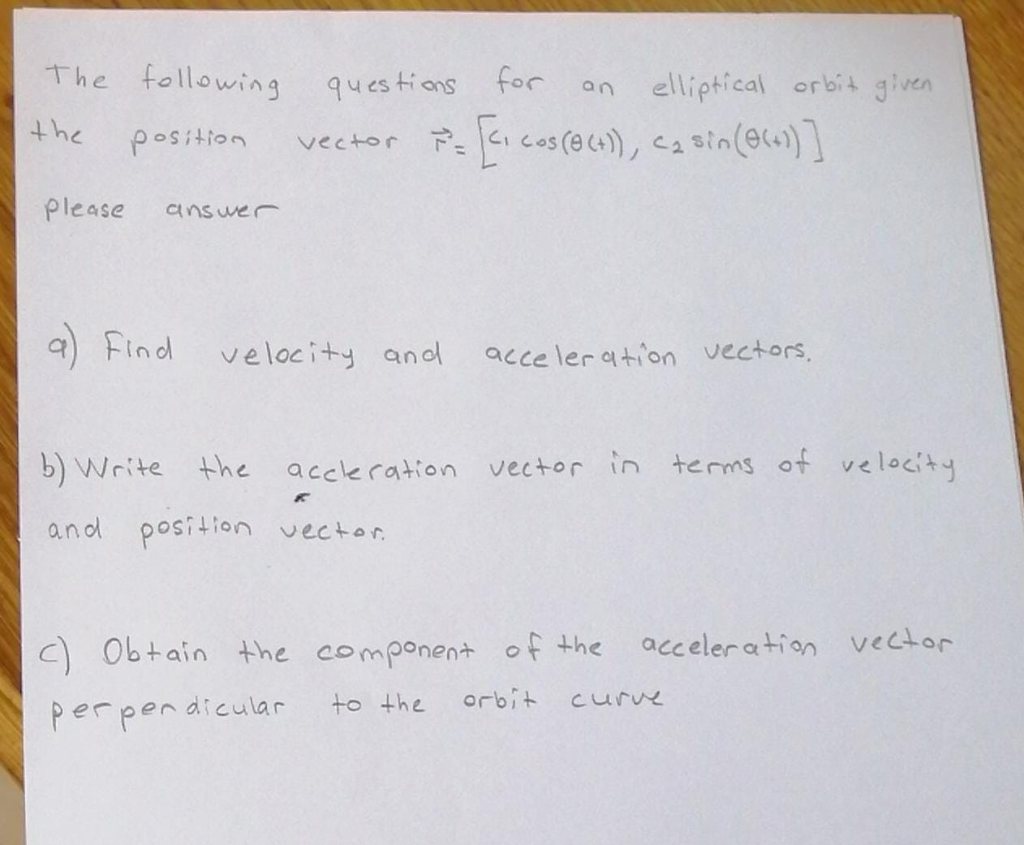 The following questions for an elliptical orbit given
the position vector r⃗ = [c₁ cos(θ(t)), c₂ sin(θ(t))]
please answer
a) Find velocity and acceleration vectors.
b) Write the accleration vector in terms of velocity
and position vector.
c) Obtain the component of the acceleration vector
perpendicular to the orbit curve